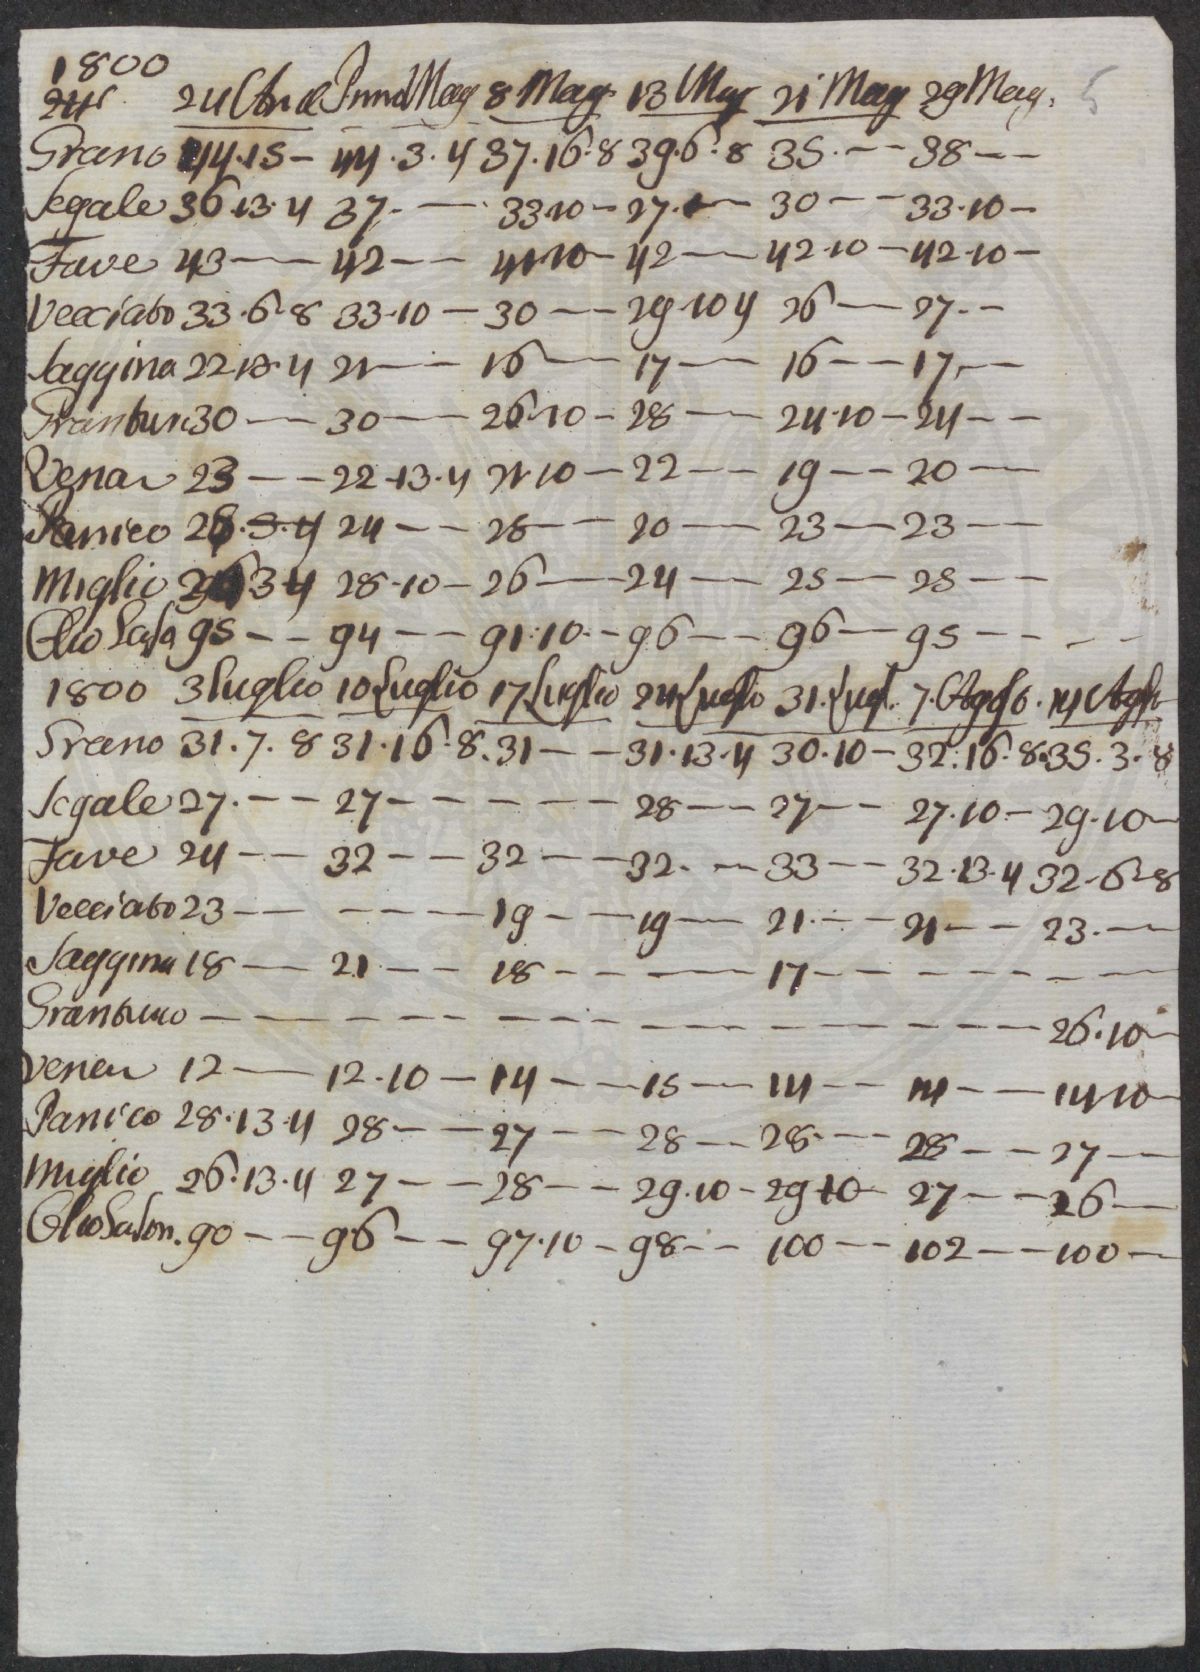 1800
24 Aprile Primo Mag 8 Mag 13 Mag 21 Mag 29 Mag. 5
Grano 44.15 - 44.3.4 37.16.8 39.6.8 35.-- 38--
Segale 36.13.4 37.- 33.10- 27.-- 30-- 33.10-
Fave 43-- 42-- 41.10- 42-- 42.10- 42.10-
Vecciato 33.6.8 33.10- 30-- 29.10 4 26-- 27.-
Saggina 22.13.4 21-- 16-- 17-- 16-- 17.--
Granturc 30-- 30-- 26.10- 28-- 24.10- 24--
Vena 23-- 22.13.4 21.10- 22-- 19-- 20--
Panico 24-- 25-- 20-- 23-- 23--
Miglio 3.4 28.10- 26-- 24-- 25-- 25--
Olio 95-- 94-- 91.10-- 96-- 96-- 95-- --
1800 3 Luglio 10 Luglio 17 Luglio 24 Luglio 31. Lugl. 7. Agosto. 14 Agosto
Grano 31.7.8 31.16.8. 31-- 31.13.4 30.10- 32.16.8. 35.3.8
Segale 27.-- 27-- ---- 28-- 27-- 27.10- 29.10-
Fave 24-- 32-- 32-- 32.-- 33-- 32.13.4 32.6.8
Vecciato 23-- ---- 19-- 19-- 21.-- 21-- 23.--
Saggina 18-- 21-- 18-- -- 17-- ---- ---
Granturco -- -- -- -- -- -- 26.10-
Vena 12-- 12.10- 14-- 15-- 14-- 14-- 14.10-
Panico 28.13.4 28-- 27-- 28-- 28.-- 28-- 27--
Miglio 26.13.4 27-- 28-- 29.10- 29.10- 27-- 26--
Olio 90-- 96-- 97.10- 98-- 100-- 102-- 100-